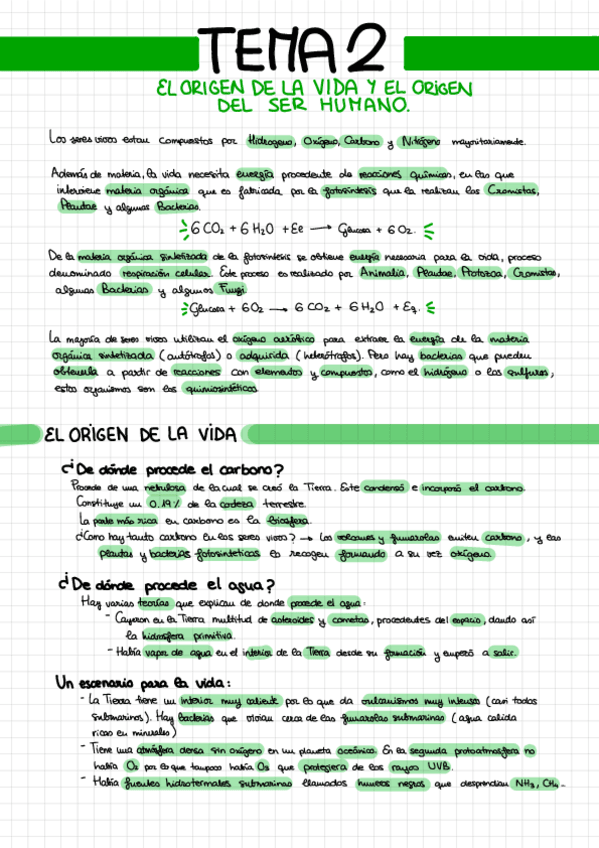 TEMA 2
EL ORIGEN DE LA VIDA Y EL ORIGEN
DEL SER HUMANO.
Los seres vivos estan compuestos por Hidrogeno, Oxígeno, Carbono y Nitrógeno mayoritariamente.
Además de materia, la vida necesita energía procedente de reacciones químicas, en las que
interviene materia orgánica que es fabricada por la fotosíntesis que la realizan las Cromistas,
Plautae y algunas Bacterias.
6 CO₂ + 6 H₂O + Ee → Glucosa + 6 O₂.
De la materia orgánica sintetizada de la fotosíntesis se obtiene energía necesaria para la vida, proceso
denominado respiración celular. Este proceso es realizado por Animalia, Plautae, Protozoa, Cromistas,
algunas Bacterias y algunos Fungi.
Glucosa + 6O₂ → 6 CO₂ + 6 H₂O + Eq.
La mayoría de seres vivos utilizan el oxígeno para extraer la energía de la materia
orgánica sintetizada (autótrofos) o adquirida (heterótrofos). Pero hay bacterias que pueden
obtenerla a partir de reacciones con elementos y compuestos, como el hidrógeno o los sulfuros,
estos organismos son los quimiosintéticos.
EL ORIGEN DE LA VIDA
¿De dónde procede el carbono?
Procede de una nebulosa de la cual se creó la Tierra. Este condensó e incorporó el carbono.
Constituye un 0.19% de la corteza terrestre.
La parte más rica en carbono es la
¿Como hay tanto carbono en los seres vivos? → Los volcanes y fumarolas emiten carbono, y las
plantas y bacterias fotosintéticas lo recogen formando a su vez oxígeno.
¿De dónde procede el agua?
Hay varias teorías que explican de donde procede el agua:
- Cayeron en la Tierra multitud de asteroides y cometas, procedentes del espacio, dando así
la hidrosfera primitiva.
- Había vapor de agua en el interior de la Tierra desde su formación y empezó a salir.
Un escenario para la vida:
- La Tierra tiene un interior muy caliente por lo que da vulcanismos muy intensos (casi todos
submarinos). Hay bacterias que vivian cerca de las fumarolas submarinas (agua calida
ricas en minerales)
- Tiene una atmósfera densa sin oxígeno en un planeta oceánico. En la segunda protoatmosfera no
había O₂ por lo que tampoco había O₃ que protegiera de los rayos UVB.
- Había fuentes hidrotermales submarinas llamados humeros negros que desprendian NH₃, CH₄ -